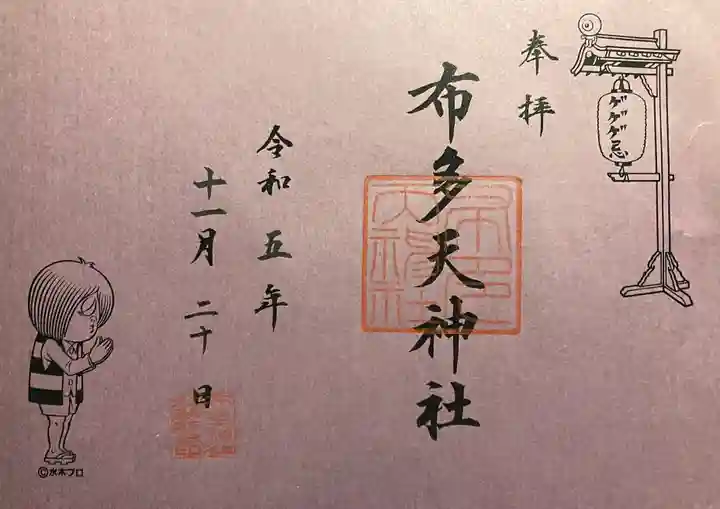 ゲゲゲ忌
奉拝
布多天神社
令和五年
十一月二十日
©水木プロ